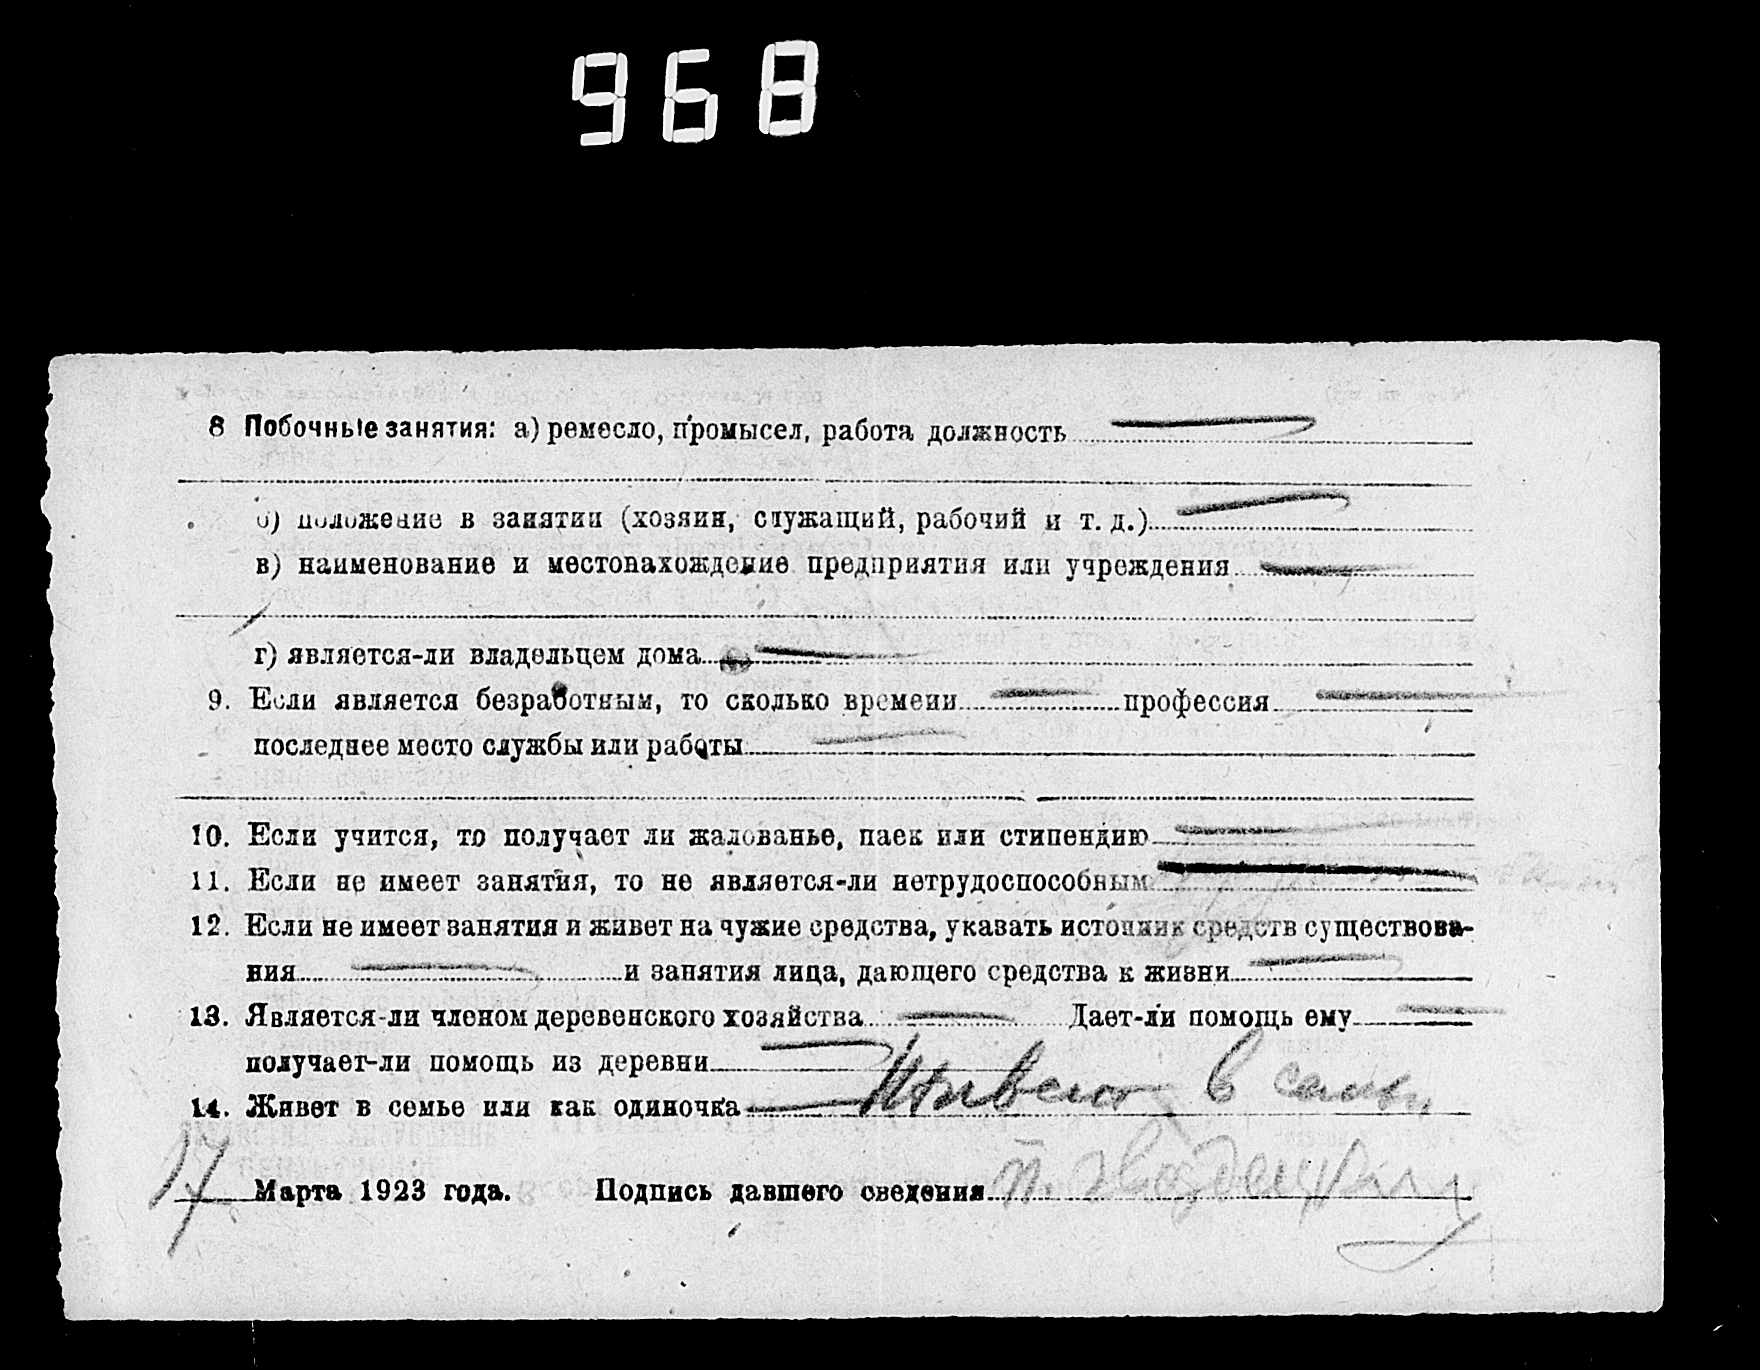 968
8 Побочные занятия: а) ремесло, промысел, работа должность
б) положение в занятии (хозяин, служащий, рабочий и т. д.)
в) наименование и местонахождение предприятия или учреждения
г) является-ли владельцем дома
9. Если является безработным, то сколько времени профессия
последнее место службы или работы
10. Если учится, то получает ли жалованье, паек или стипендию
11. Если не имеет занятия, то не является-ли нетрудоспособным
12. Если не имеет занятия и живет на чужие средства, указать источник средств существова-
ния и занятия лица, дающего средства к жизни
13. Является-ли членом деревенского хозяйства Дает-ли помощь ему
получает-ли помощь из деревни
14. Живет в семье или как одиночка в семьи
17 Марта 1923 года. Подпись давшего сведения